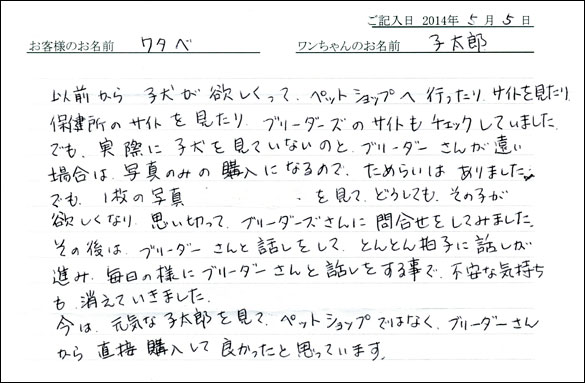 ご記入日 2014年 5月 5日
お客様のお名前 ワタベ ワンちゃんのお名前 子太郎
以前から 子犬が 欲しくって、ペットショップへ 行ったり、サイトを見たり、
保健所のサイトを見たり、ブリーダーズのサイトもチェックしていました。
でも、実際に子犬を見ていないのと、ブリーダーさんが遠い
場合は、写真のみの購入になるので、ためらいは ありました。
でも、1枚の写真 を見て、どうしても、その子が
欲しくなり、思い切って、ブリーダーズさんに 問合せをしてみました。
その後は、ブリーダーさんと話しをして、とんとん拍子に話しが
進み、毎日の様にブリーダーさんと話しをする事で、不安な気持ち
も、消えていきました。
今は、元気な子太郎を見て、ペットショップではなく、ブリーダーさん
から 直接購入して良かったと思っています。